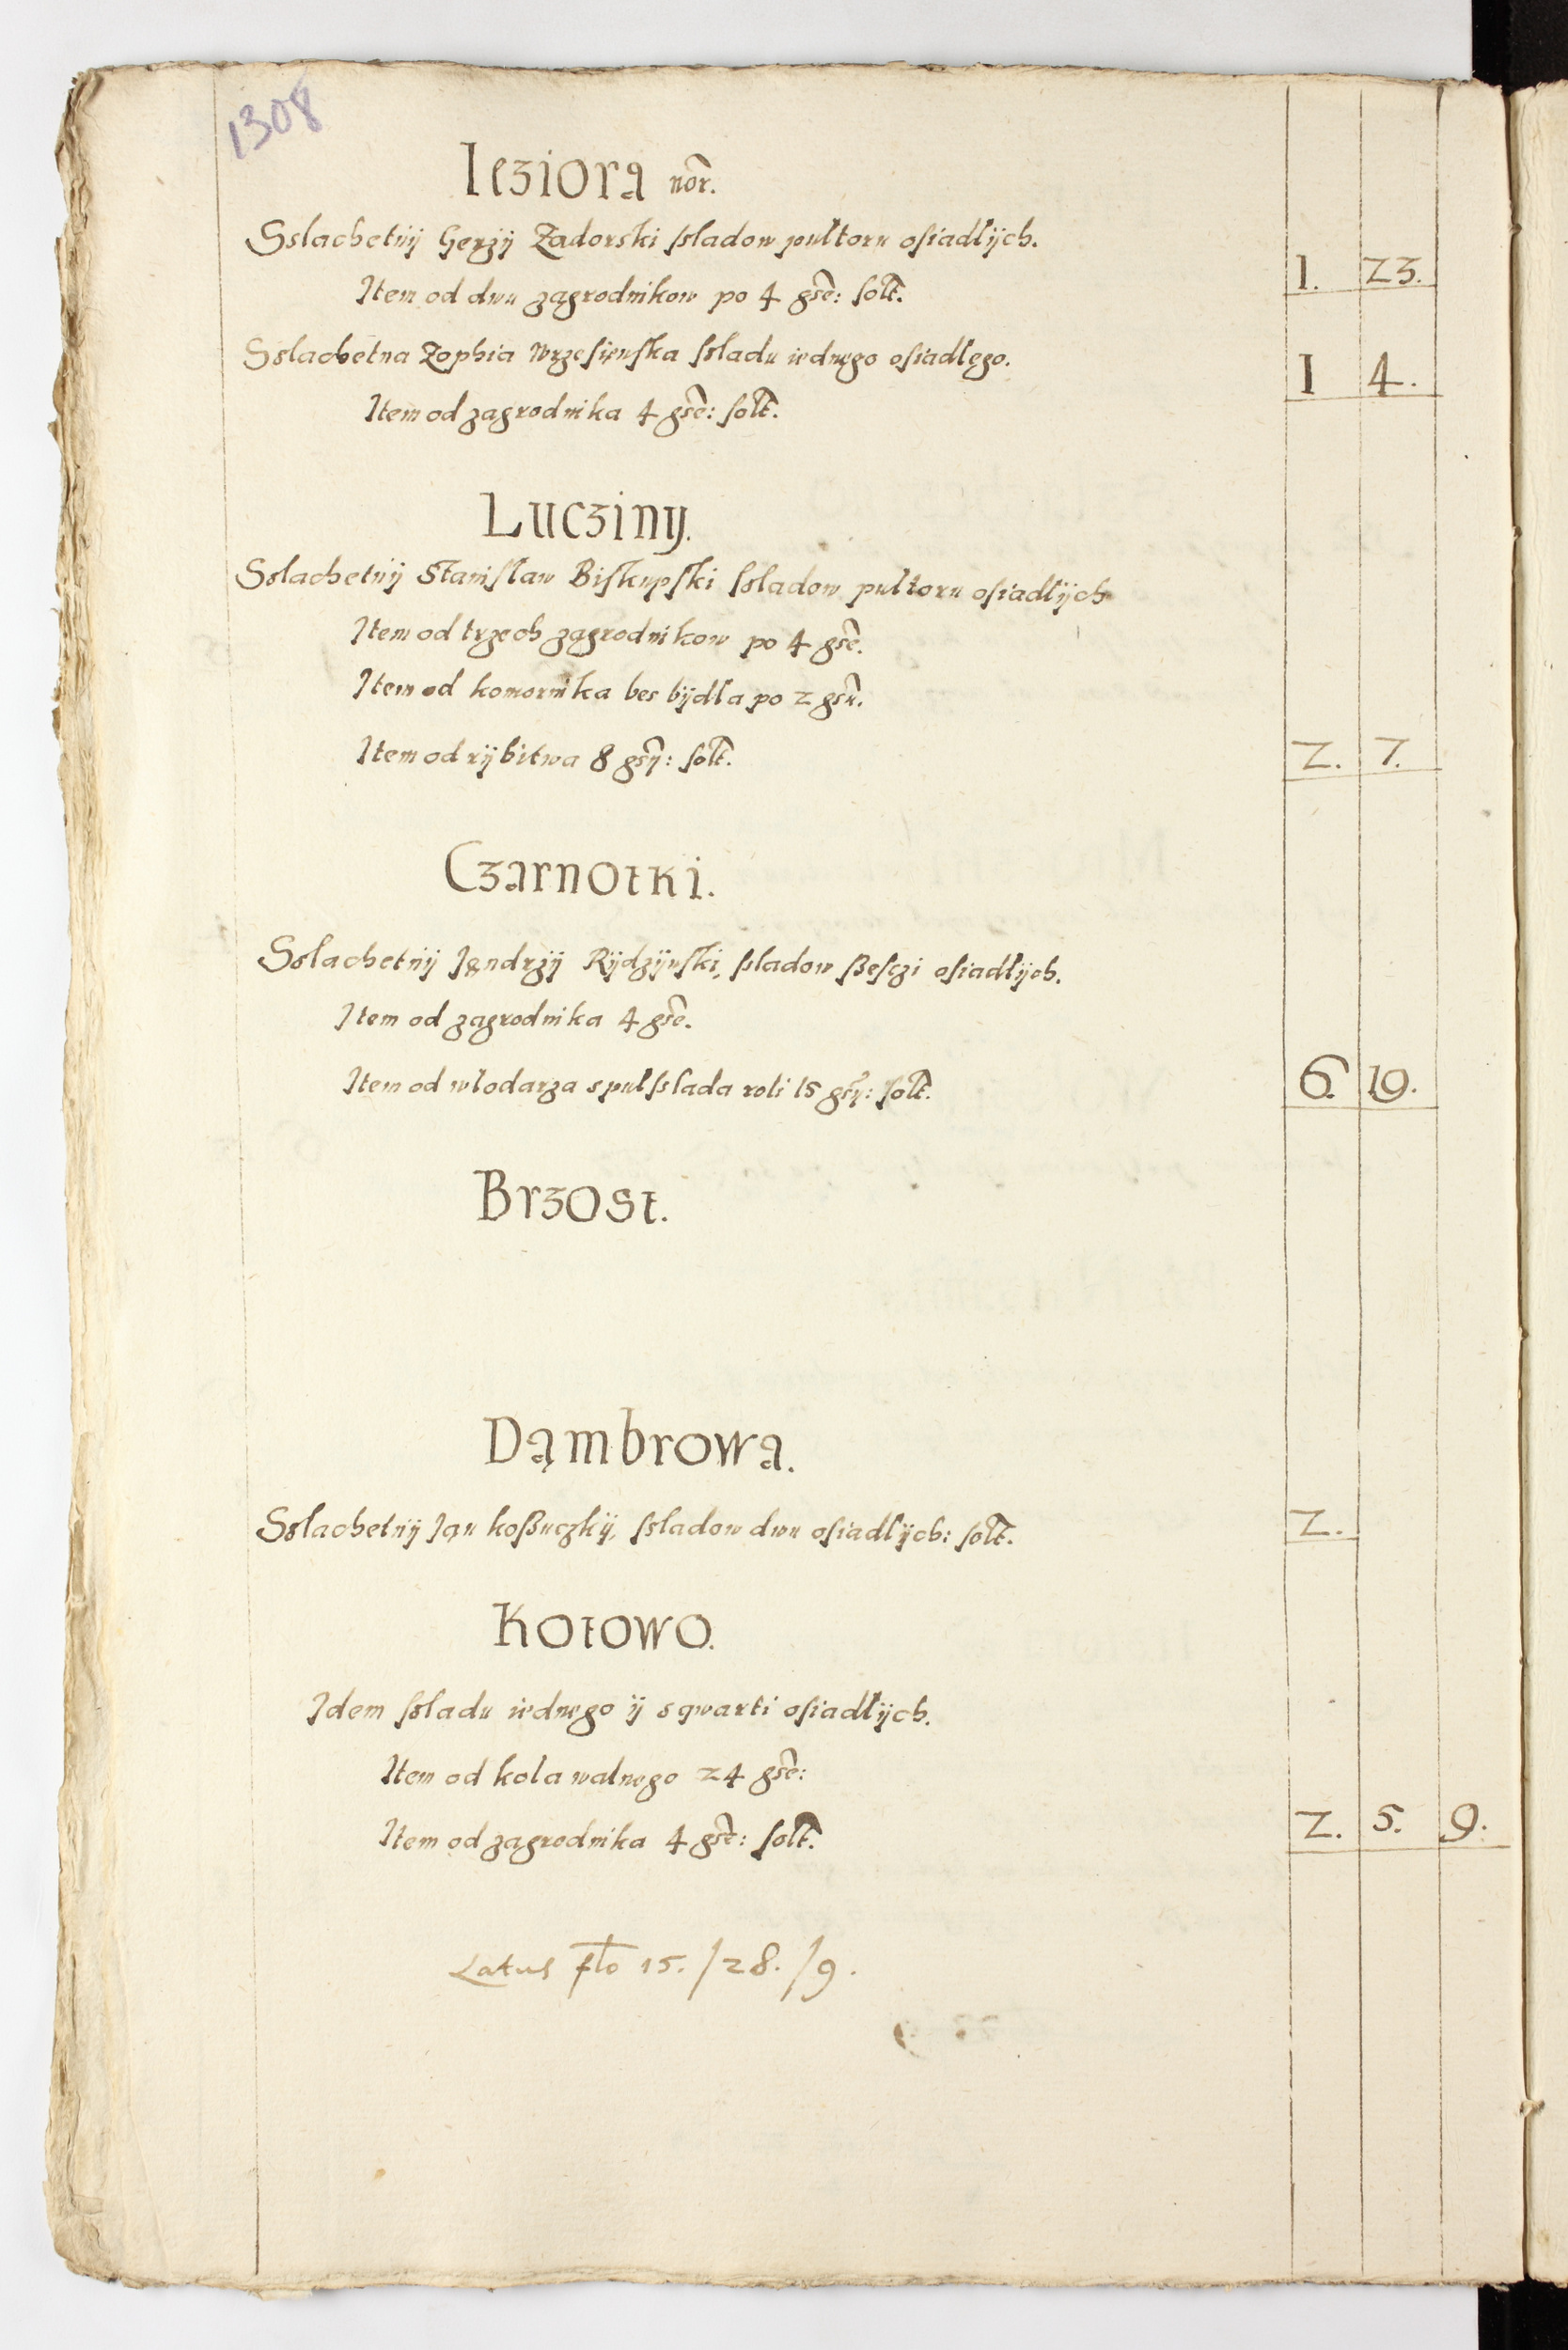 1308
Ieziora nor.
Sslachetnÿ Gerzÿ Zadorski sladow pułtoru osiadlÿch.
Item od dwu zagrodnikow po 4 gse: solt. 1. 23.
Sslachetna Zophia Wrzesienska sladu iednego osiadlego.
Item od zagrodnika 4 gse: solt. 1 4.
Lucziny.
Sslachetnÿ Stanislaw Biskupski sladow pułtoru osiadlÿch
Item od trzech zagrodnikow po 4 gse.
Item od komornika bes bÿdła po 2 gsu.
Item od rÿbitwa 8 gsÿ: solt. 2. 7.
Czarnotki.
Sslachetnÿ Jendrzÿ Rÿdzÿnski, sladow sßesczi osiadlÿch.
Item od zagrodnika 4 gse.
Item od wlodarza s pulslada roli 15 gsÿ: solt. 6. 19.
Brzost.
Dąmbrowa.
Sslachetnÿ Jan koßuczkÿ, sladow dwu osiadlÿch: solt. 2.
Kotowo.
Idem sladu iednego ÿ s qwarti osiadlÿch.
Item od kola walnego 24 gse:
Item od zagrodnika 4 gse: solt. 2. 5. 9.
Latus flo 15. / 28. / 9.